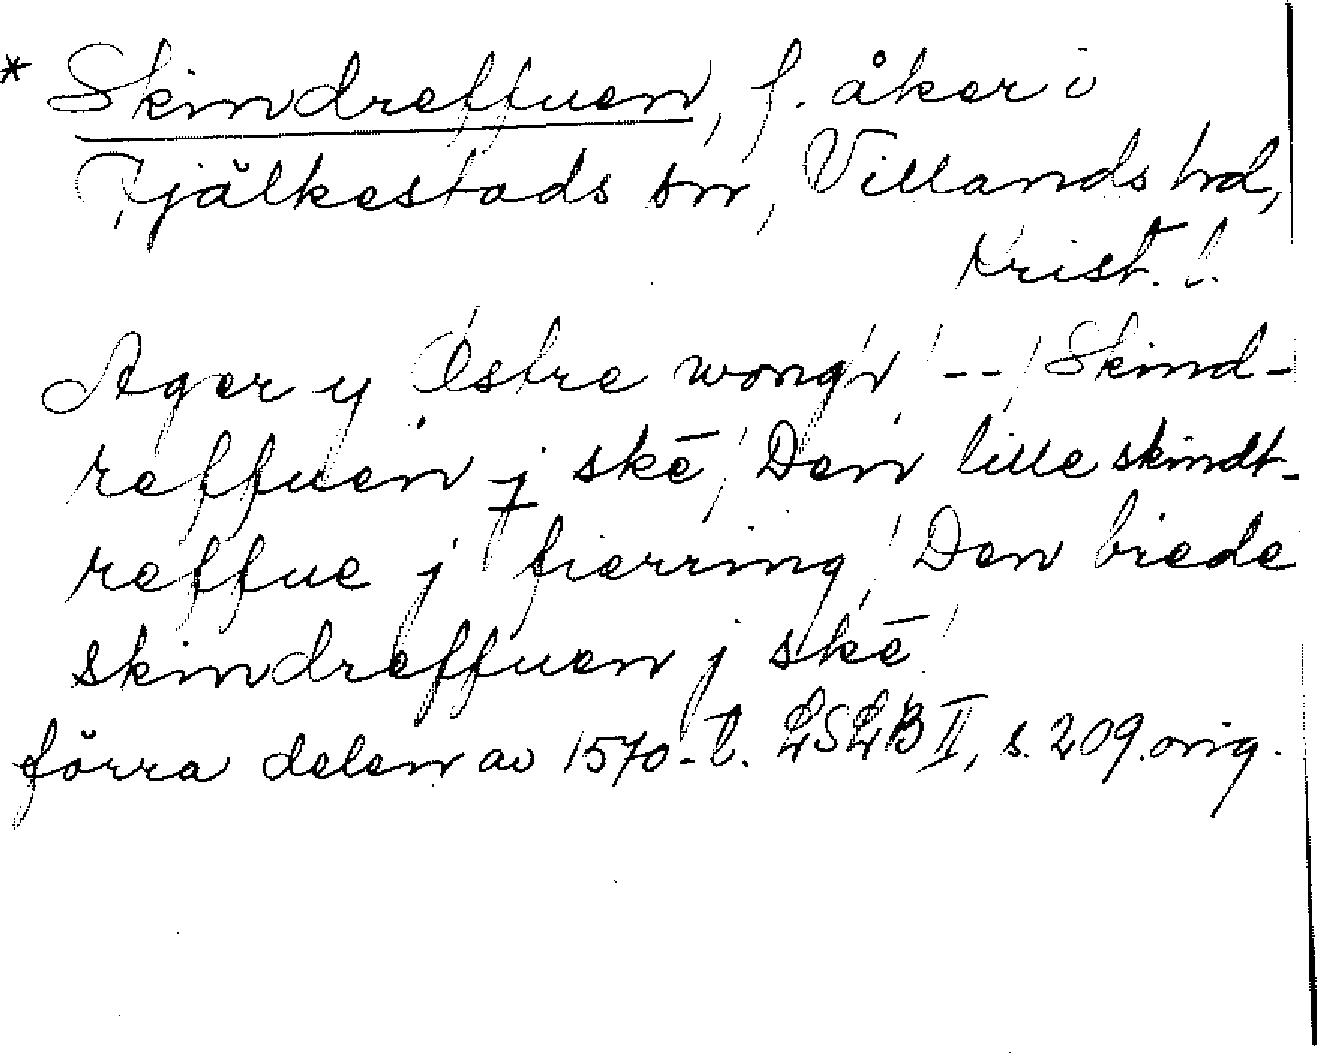 * Skindreffuen, f. åker i
Fjälkestads sn, Villands hd,
Krist. l.
Ager y Østre wong / -- / Skind-
reffuen j skē / Den lille skindt-
reffue j fierring / Den brede
skindreffuen j skē /
förra delen av 1570-t. LSLB II, s. 209. orig.